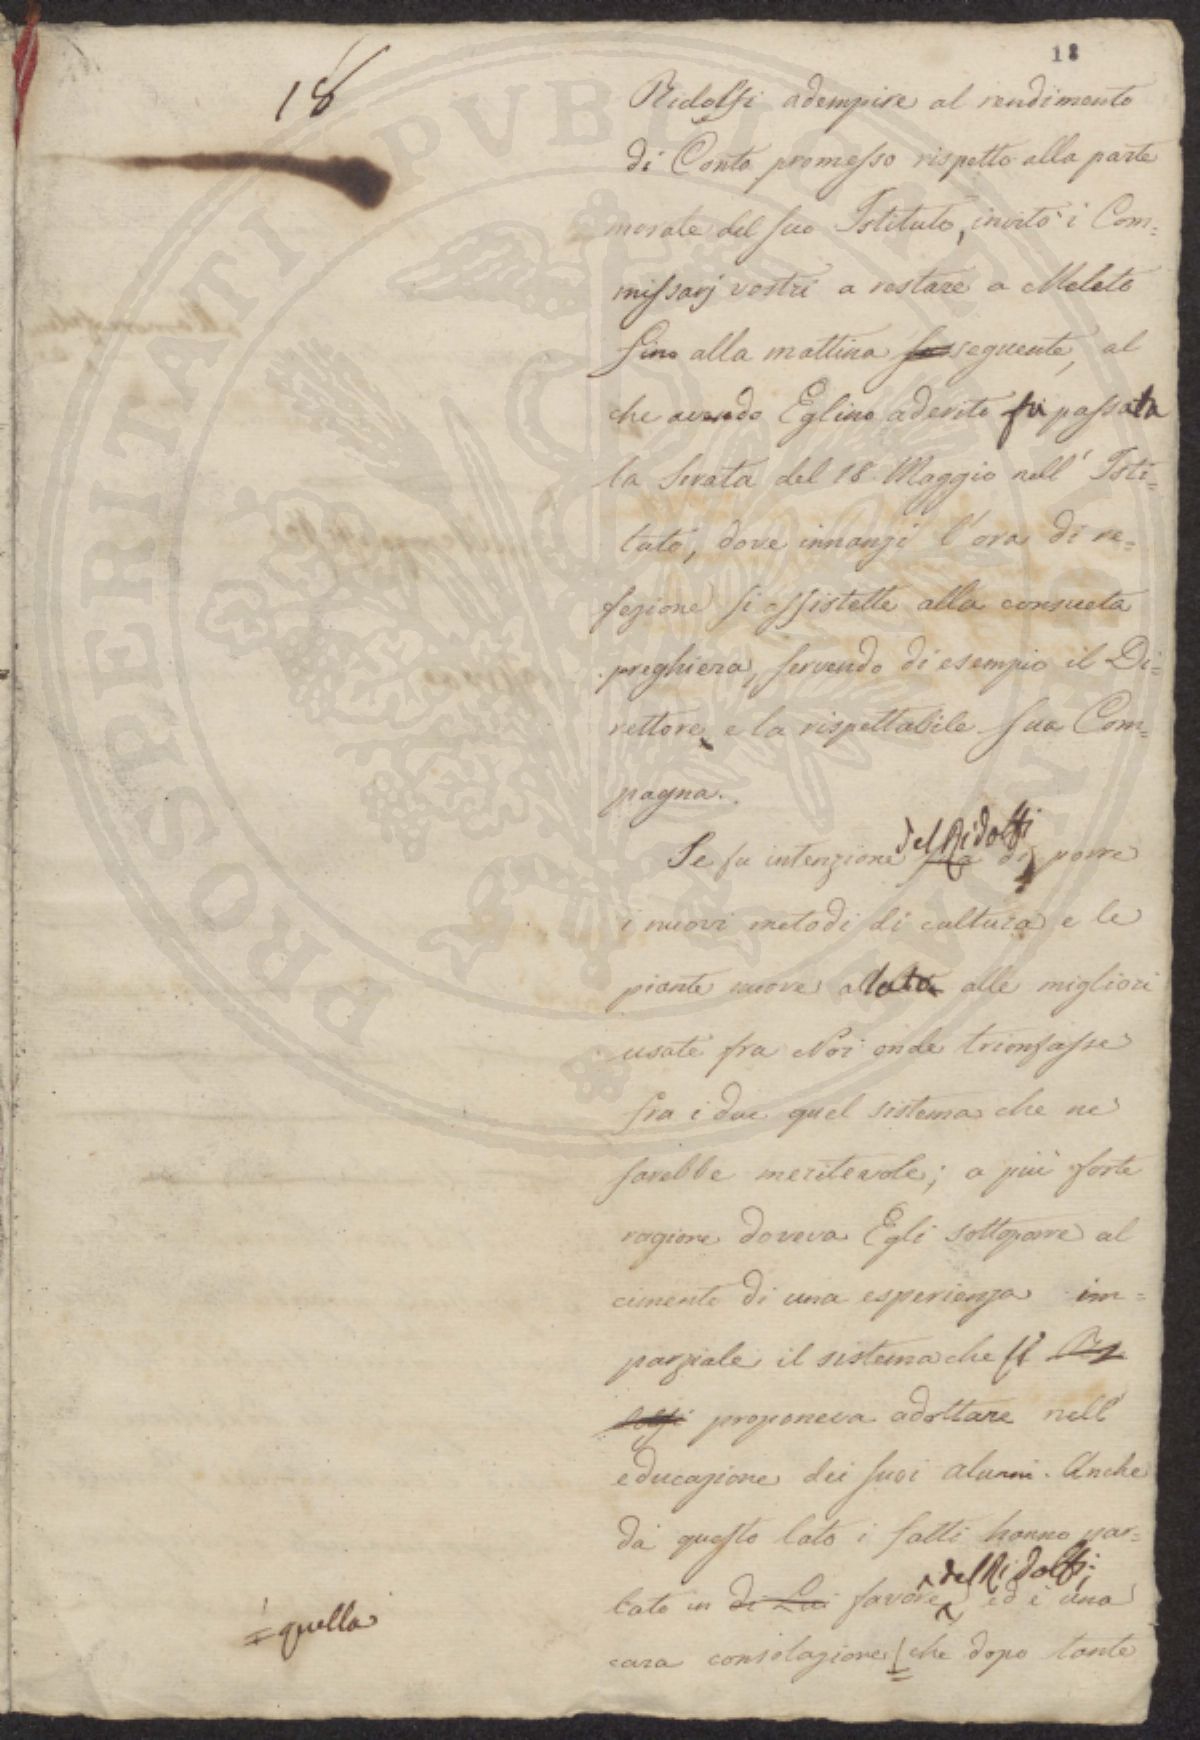 18
18
Ridolfi adempire al rendimento
di Conto promesso rispetto alla parte
morale del suo Istituto, invitò i Com=
missarj vostri a restare a Meleto
fino alla mattina seguente, al
che avendo Eglino aderito fu passata
la serata del 18 Maggio nell' Isti=
tuto, dove innanzi l'ora di re=
fezione si assistette alla consueta
preghiera, servendo di esempio il Di=
rettore e la rispettabile sua Com=
pagna.
del Ridolfi
Se fu intenzione sua di porre
i nuovi metodi di cultura e le
piante nuove allato alle migliori
usate fra Noi onde trionfasse
fra i due quel sistema che ne
sarebbe meritevole; a più forte
ragione doveva Egli sottoporre al
cimento di una esperienza im=
parziale il sistema che si Ri
dolfi proponeva adottare nell'
educazione dei suoi alunni. Anche
da questo lato i fatti hanno par=
del Ridolfi;
lato in di Lui favore, ed è una
cara consolazione che dopo tante
= quella
PROSPERITATI PVBLICAE